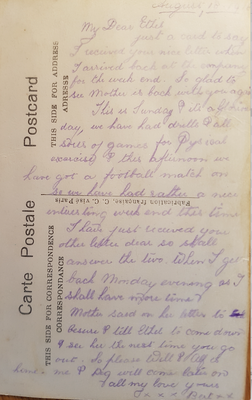 August 19
My Dear Ethel
just a card to say
I received your nice letter when
I arrived back at the company
for the week end. So glad to
see Mother is back with you again
This is Sunday & its a
day, we have had drills & all
sorts of games for Physical
exercise & this afternoon we
have got a football match on
So we have had rather a nice
interesting week end this time
I have just received your
other letter dear so shall
answer the two when I get
back Monday evening as I
shall have more time
Mother said in her letter to
be sure & tell Ethel to come down
& see her the next time you go
out. So please
me & Reg well
all my love yours
x x x
Carte Postale
Postcard
THIS SIDE FOR CORRESPONDENCE
CORRESPONDANCE
THIS SIDE FOR ADDRESS
ADRESSE
Fabrication Française. C. C. visé Paris